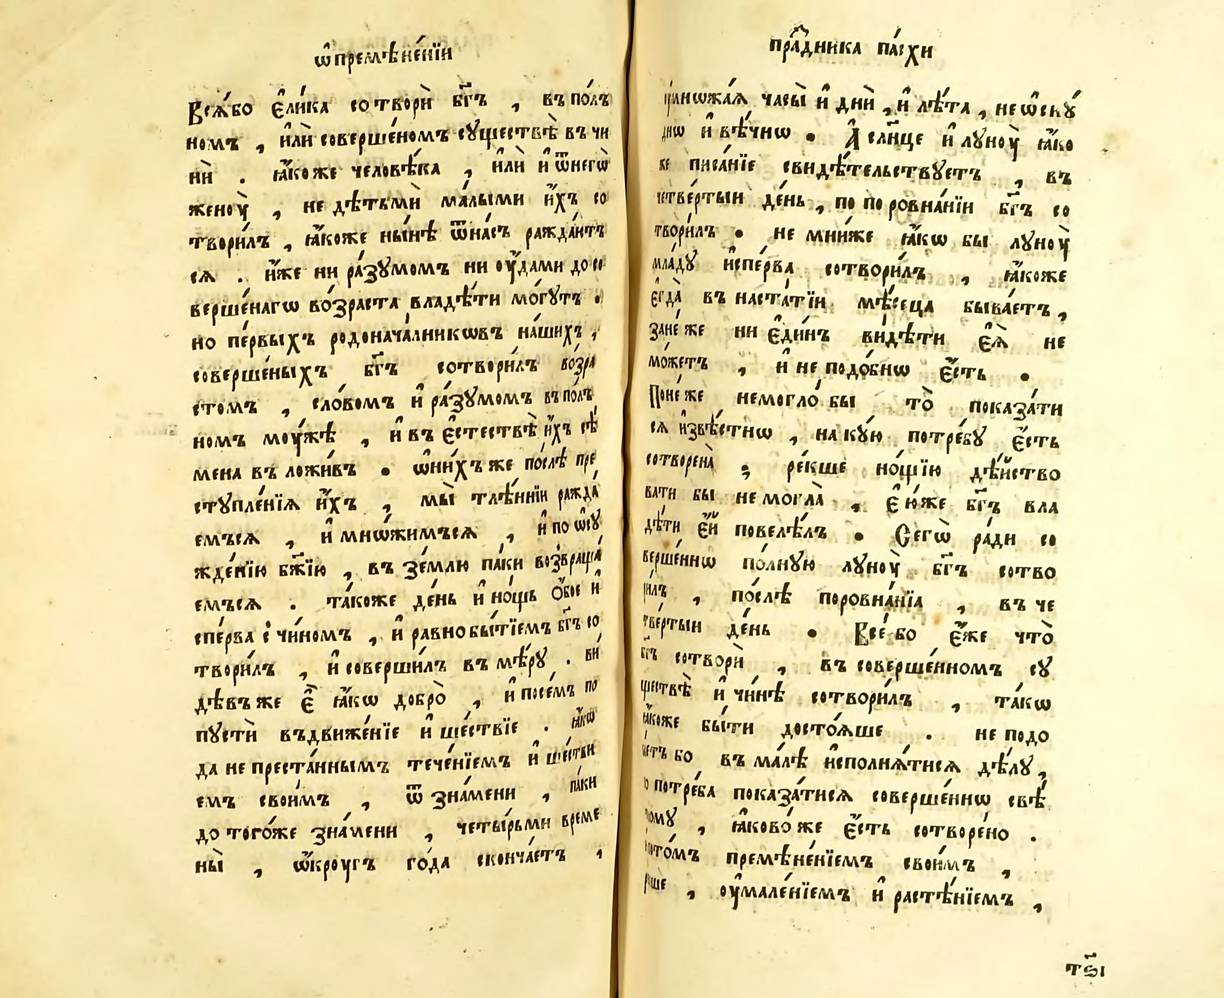 ѡ҆премѣне́нїи
Всѧ҄бо є҆ли́ка сотворѝ бг҃ъ , въпо́лъ
номъ , и҆лѝ соверше́номъ существѣ̀ въчи
нѝ . ꙗ҆́коже человѣ́ка , и҆лѝ и҆ ѿнегѡ̀
женоу̀ , не дѣтьмѝ ма́лыми и҆́хъ со
твори́лъ , ꙗ҆́коже ны́нѣ ѿна́съ ражда́итъ
сѧ . и҆́же ни ра́зумомъ ни оу҆́дами до со
верше́нагѡ во́зраста владѣ́ти мо́гутъ .
но пе́рвыхъ родонача́лникѡвъ на́шихъ ,
соверше́ныхъ бг҃ъ сотвори́лъ возра
стомъ , сло́вомъ и҆ ра́зумомъ въпо́лъ
номъ моу́жѣ , и҆ въ є҆стествѣ̀ и҆́хъ сѣ
мена въложи́въ . ѡ҆ни́хъже по́слѣ пре
ступле́нїѧ и҆́хъ , мы̀ тлѣ́ннїи ражда́
емъсѧ , и҆ мнѡ́жимъсѧ , и҆ по ѡ҆су
жде́нїю бж҃їю , въ зе́млю па́ки возвраща́
емъсѧ . та́коже де́нь и҆ но́щь ѻ҆́бое и҆
спе́рва с чи́номъ , и҆ равнобытїемъ бг҃ъ со
твори́лъ , и҆ соверши́лъ въмѣ́ру . ви́
дѣвъже є҆̀ ꙗ҆́кѡ добро̀ , и҆ посе́мъ по
пустѝ въдвиже́нїе и҆ ше́ствїе . ꙗ҆́кѡ
да не преста́ннымъ тече́нїемъ и҆ ше́стви
емъ свои́мъ , ѿ зна́мени , па́ки
до того́же зна́мени , четы́рьми време
ны̀ , ѡ҆́кроугъ го́да сконча́етъ ,
пра́здника па́схи
часы̀ и҆ днѝ , и҆ лѣ́та , не ѡ҆ску́
днѡ и҆ вѣ́чнѡ . А҆ сл҃нце и҆ луноу̀ ꙗ҆́ко
же писа́нїе свидѣ́тельствуетъ , въ
четве́ртый де́нь , по поровна́нїи бг҃ъ со
твори́лъ . не мни́же ꙗ҆́кѡ бы луноу̀
мла́ду и҆спе́рва сотвори́лъ , ꙗ҆́коже
є҆гда̀ въ наста́тїи мѣ́сеца быва́етъ ,
зане́же ни є҆ди́нъ ви́дѣти є҆ѧ̀ не
мо́жетъ , и҆ не подо́бнѡ є҆́сть .
Поне́же немогло́ бы то̀ показа́ти
сѧ и҆звѣ́стнѡ , на кую потре́бу є҆́сть
сотворена̀ ; ре́кше но́щїю дѣ́йство
вати бы не могла̀ , є҆́юже бг҃ъ вла
дѣ́ти є҆́й повелѣ́лъ . Сегѡ̀ ра́ди со
верше́ннѡ по́лную луноу̀ бг҃ъ сотво
ри́лъ , по́слѣ поровна́нїѧ , въче
тве́ртый де́нь . Все́бо є҆́же что̀
бг҃ъ сотворѝ , въ соверше́нномъ су
ществѣ̀ и҆ чи́нѣ сотвори́лъ , та́кѡ
ꙗ҆́коже бы́ти досто́ѧше . не подо
бо въ ма́лѣ и҆сполнѧ́тисѧ дѣ́лу ,
потре́ба показа́тисѧ соверше́ннѡ свѣ́
ꙗ҆ково́же є҆́сть сотворе́но .
премѣне́нїемъ свои́мъ ,
оу҆мале́нїемъ и҆ расте́нїемъ ,
тѕ҃і